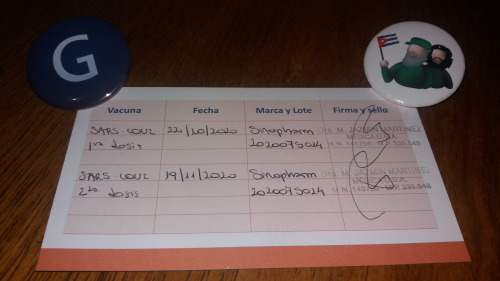 G
Vacuna Fecha Marca y Lote Firma y sello
SARS COV2 22/10/2020 Sinopharm Dra. M. JAZMIN MARTINEZ
1ra dosis 2020075024 MEDICA U.B.A.
M.N. 149758 - M.P. 335.548
SARS COV2 19/11/2020 Sinopharm Dra. M. JAZMIN MARTINEZ
2da dosis 2020075024 MEDICA U.B.A.
M.N. 149758 - M.P. 335.548